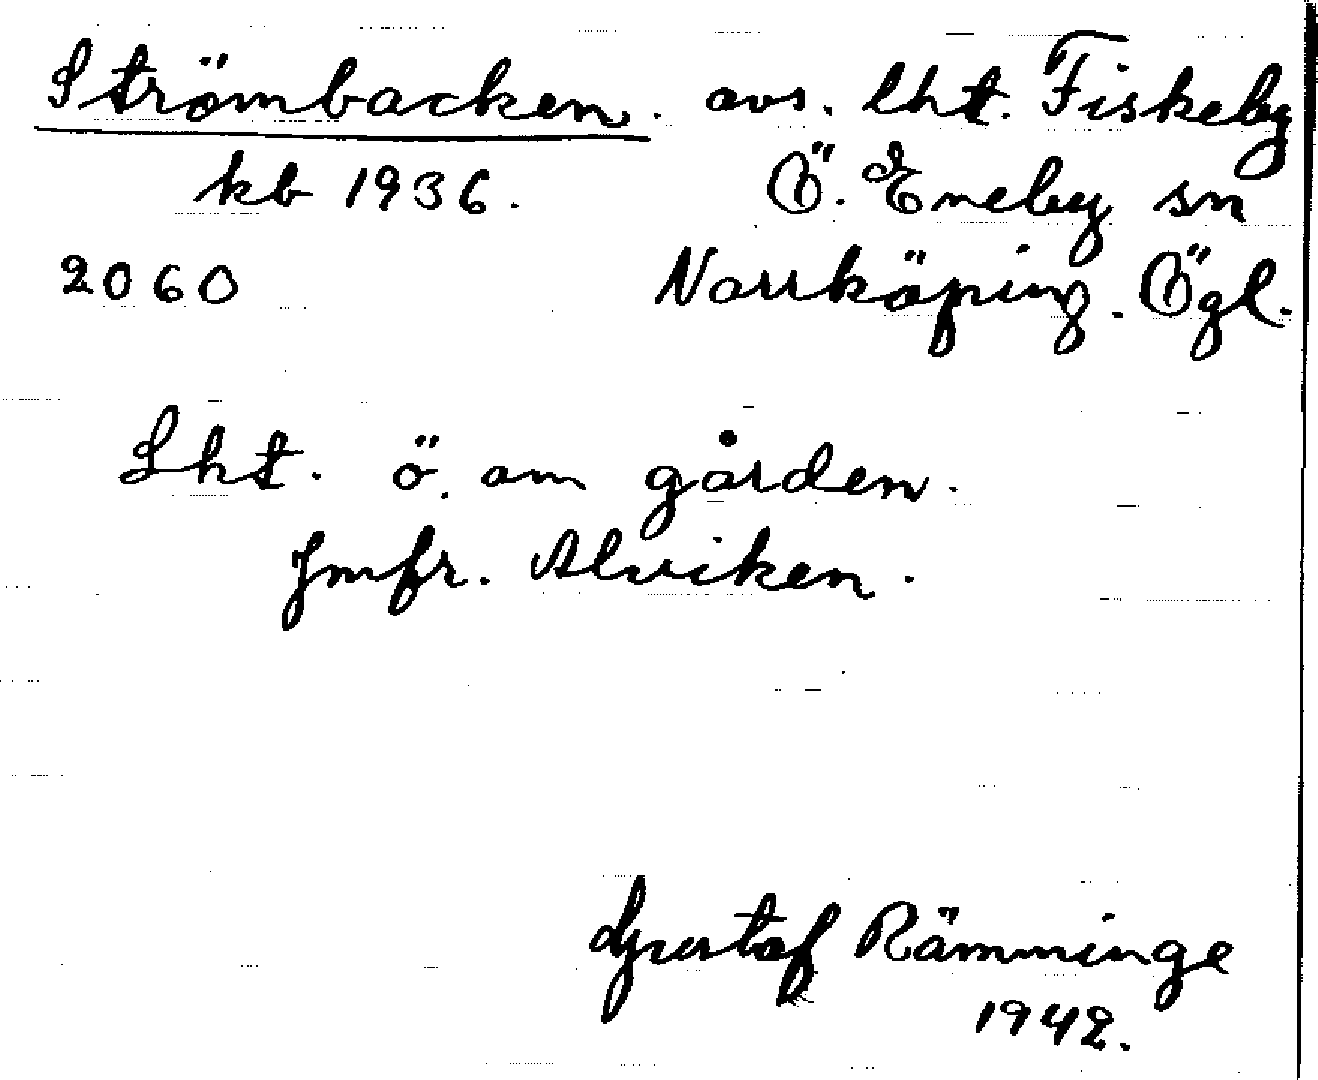 Strömbacken. avs. lht. Fiskeby
kb 1936. Ö. Eneby sn
2060 Norrköping. Ögl.
Lht. ö. om gården.
Jmfr. Alviken.
Gustaf Rämminge
1942.